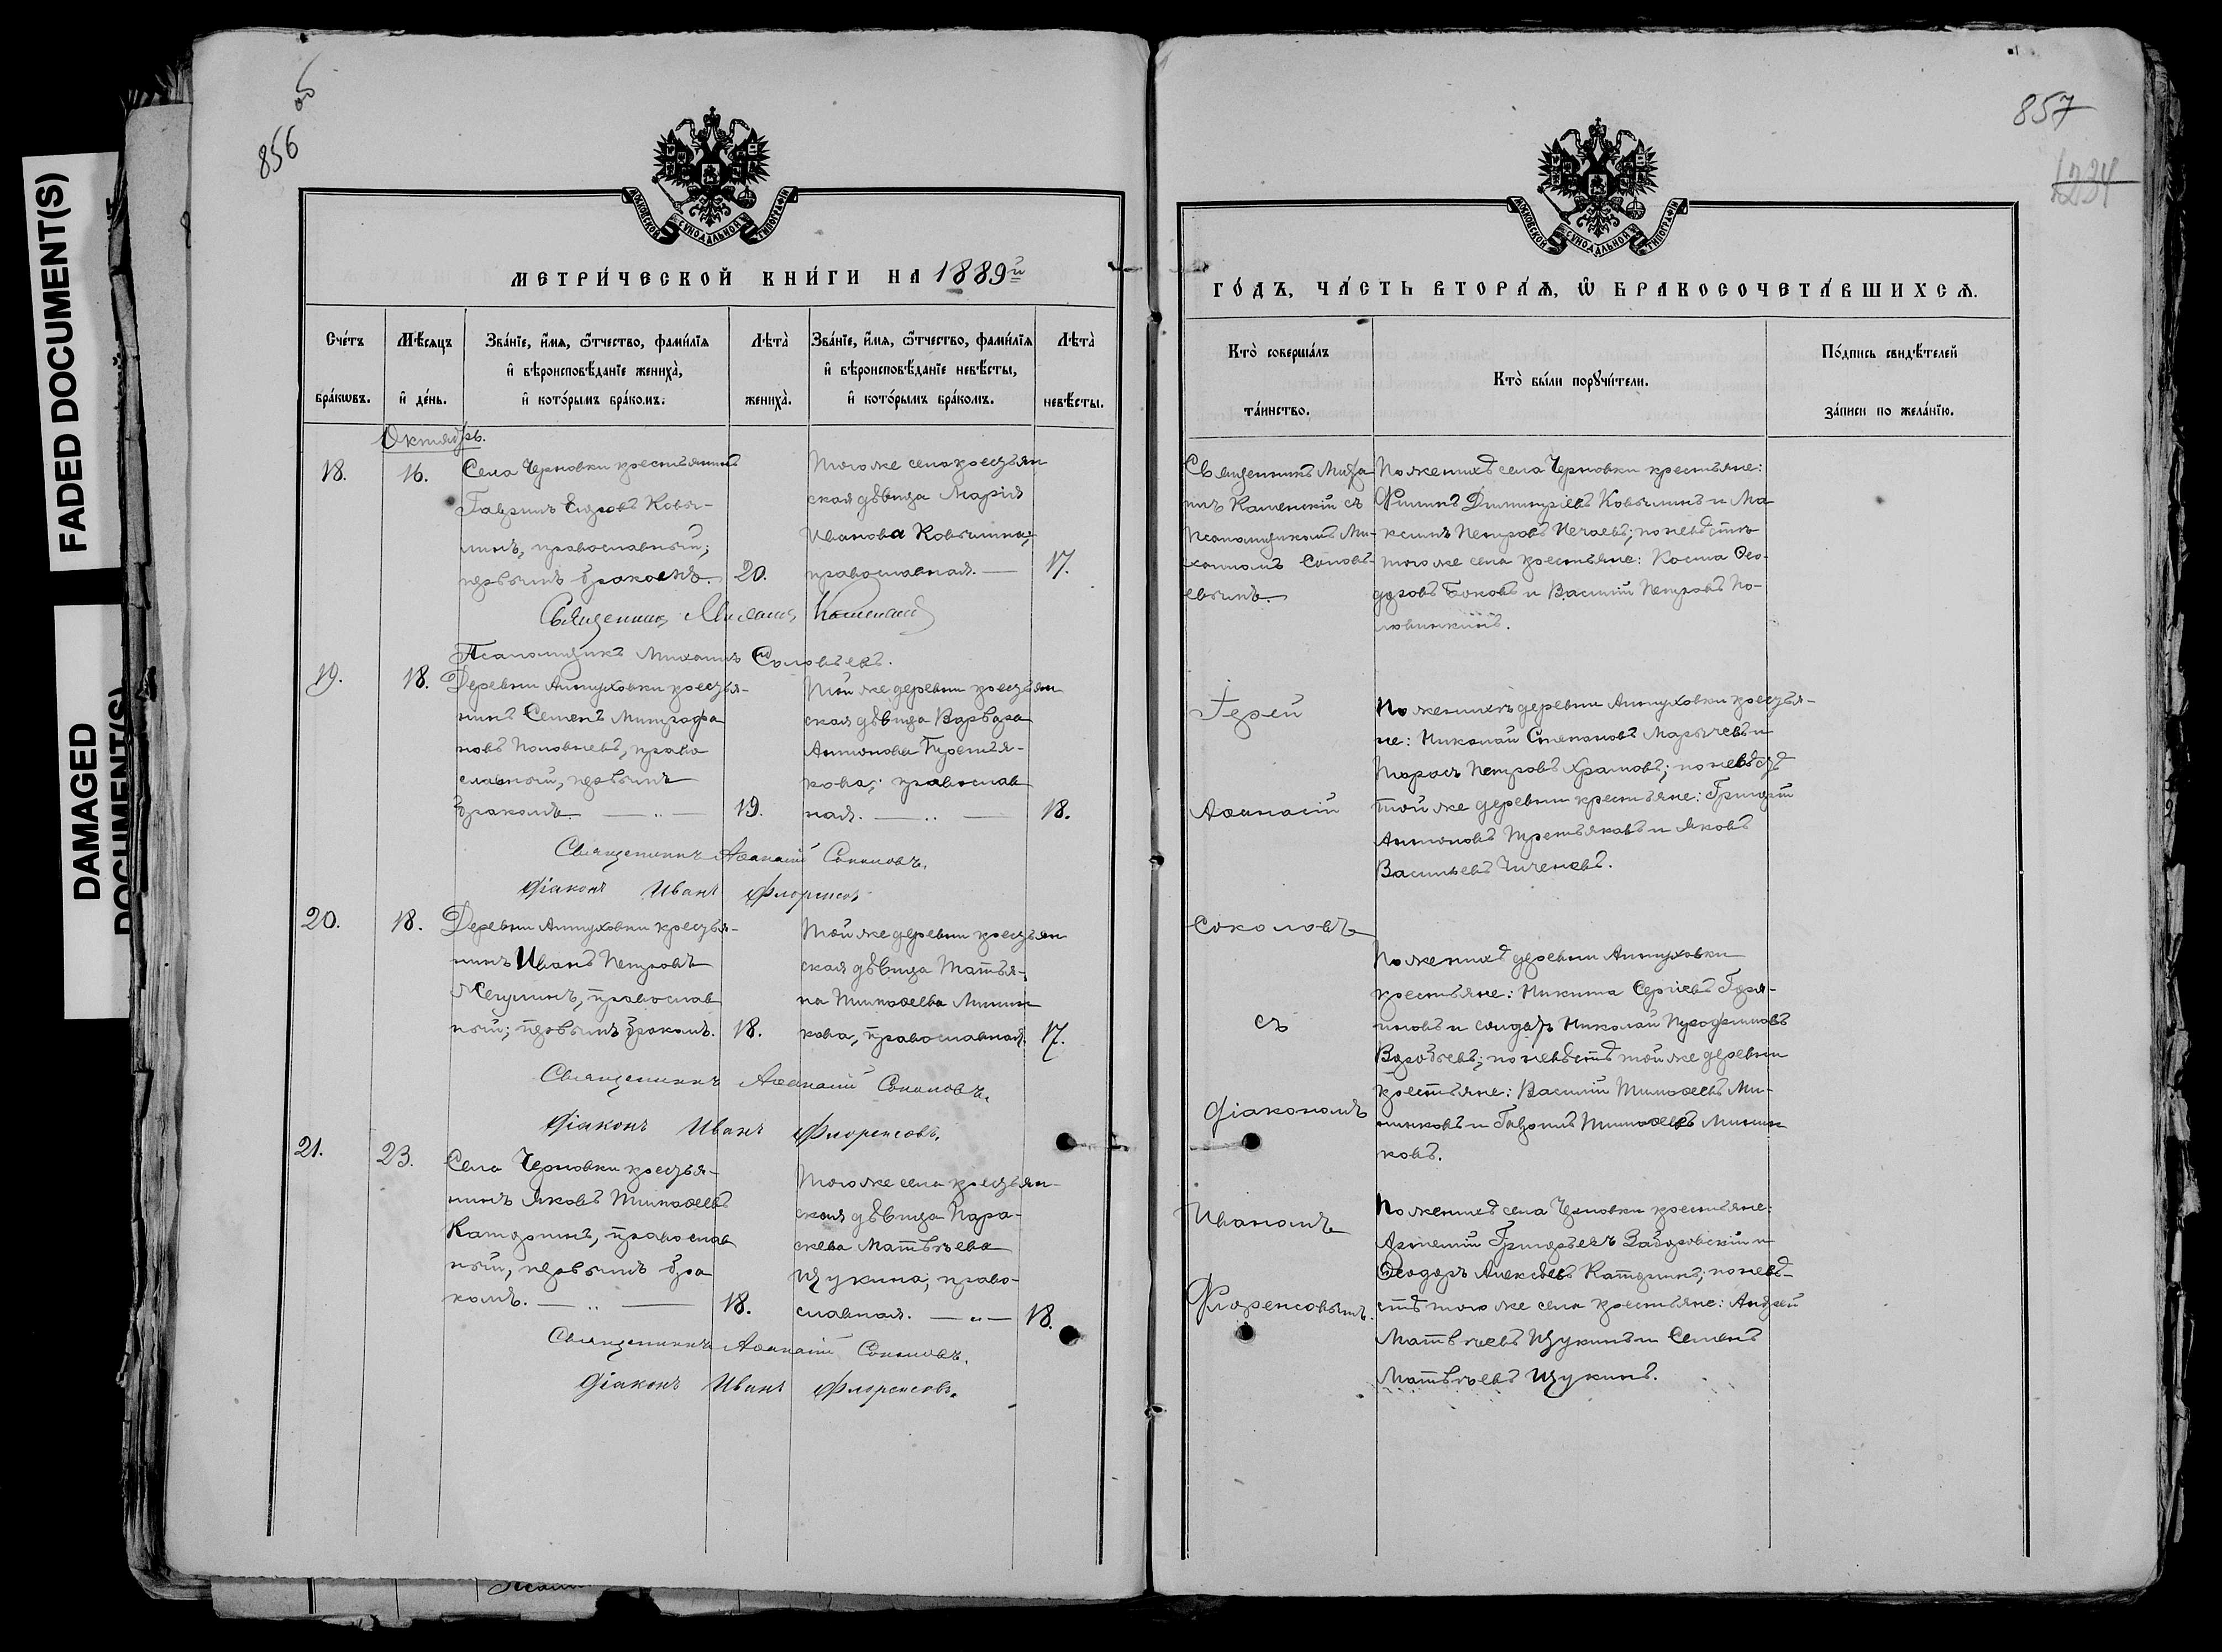 FADED DOCUMENT(S)
DAMAGED
DOCUMENT(S)
856 об
МОСКОВСКОЙ СѴНОДАЛЬНОЙ ТИПОГРАФІИ
МЕТРИ́ЧЕСКОЙ КНИ́ГИ НА 1889й
Сче́тъ бра́кѡвъ.
Мѣ́сяцъ и҆ де́нь.
Зва́нїе, и҆́мя, ѻ҆́тчество, фами́лїя
и҆ вѣроисповѣ́данїе жениха̀,
и҆ кото́рымъ бра́комъ.
Лѣта̀ жениха̀.
Зва́нїе, и҆́мя, ѻ҆́тчество, фами́лїя
и҆ вѣроисповѣ́данїе невѣ́сты,
и҆ кото́рымъ бра́комъ.
Лѣта̀ невѣ́сты.
Октябрь.
18.
16.
Села Черновки крестьянинъ
Гавріилъ Егоровъ Ковы-
линъ, православный;
первымъ бракомъ.
20.
Того же села крестьян
ская дѣвица Марія
Иванова Ковылина,
православная.
17.
Священникъ Михаилъ Каменскій
Псаломщикъ Михаилъ Соловьевъ.
19.
18.
Деревни Аптуховки крестья-
нинъ Семенъ Митрофа
новъ Половневъ, право
славный, первымъ
бракомъ.
19.
Той же деревни крестьян
ская дѣвица Варвара
Антонова Третья-
кова; православ
ная.
18.
Священникъ Аѳанасій Соколовъ.
Діаконъ Иванъ Флоренсовъ
20.
18.
Деревни Аптуховки крестья-
нинъ Иванъ Петровъ
православ
ный; первымъ бракомъ.
18.
Той же деревни крестьян
ская дѣвица Татья-
на Тимоѳеева Минин
кова, православная.
17.
Священникъ Аѳанасій Соколовъ.
Діаконъ Иванъ Флоренсовъ.
21.
23.
Села Черновки крестья-
нинъ Яковъ Тимоѳеевъ
Каторгинъ, православ
ный, первымъ бра
комъ.
18.
Того же села крестьян-
ская дѣвица Пара-
скева Матвѣева
Щукина, право-
славная.
18.
Священникъ Аѳанасій Соколовъ.
Діаконъ Иванъ Флоренсовъ.
857
1234
МОСКОВСКОЙ СѴНОДАЛЬНОЙ ТИПОГРАФІИ
ГО́ДЪ, ЧА́СТЬ ВТОРА́Я, Ѡ҆ БРАКОСОЧЕТА́ВШИХСЯ.
Кто̀ соверша́лъ та́инство.
Кто̀ бы́ли порꙋчи́тели.
По́дпись свидѣ́телей
за́писи по жела́нїю.
Священникъ Миха
илъ Каменскій съ
Псаломщикомъ Ми-
хаиломъ Соловь-
евымъ.
По женихѣ села Черновки крестьяне:
Филипъ Димитріевъ Ковылинъ и Ма
ксимъ Петровъ Нечаевъ; по невѣстѣ
того же села крестьяне: Косма Ѳео-
доровъ Боковъ и Василій Петровъ По-
ловинкинъ.
Іерей
Аѳанасій
Соколовъ
съ
Діакономъ
Иваномъ
Флоренсовымъ.
По женихѣ деревни Аптуховки крестья-
не: Николай Степановъ Марычевъ и
Тарасъ Петровъ Храмовъ; по невѣстѣ
той же деревни крестьяне: Григорій
Антоновъ Третьяковъ и Яковъ
Васильевъ Чиченевъ.
По женихѣ деревни Аптуховки
крестьяне: Никита Сергіевъ Горя-
иновъ и солдатъ Николай
Воробьевъ; по невѣстѣ той же деревни
крестьяне: Василій Тимоѳеевъ Ми-
нинковъ и Гавріилъ Тимоѳеевъ Минин
ковъ.
По женихѣ села Черновки крестьяне:
Артемій Григорьевъ Заборовскій и
Ѳеодоръ Алексѣевъ Каторгинъ; по невѣ-
стѣ того же села крестьяне: Андрей
Матвѣевъ Щукинъ и Семенъ
Матвѣевъ Щукинъ.